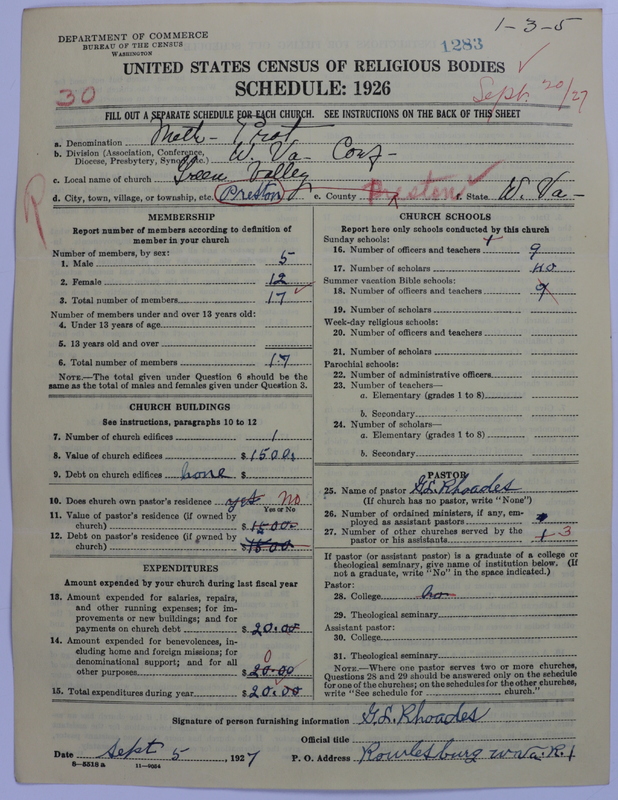 1-3-5
DEPARTMENT OF COMMERCE
BUREAU OF THE CENSUS
WASHINGTON
1283
UNITED STATES CENSUS OF RELIGIOUS BODIES
SCHEDULE: 1926
30
Sept. 20/27
FILL OUT A SEPARATE SCHEDULE FOR EACH CHURCH. SEE INSTRUCTIONS ON THE BACK OF THIS SHEET
a. Denomination Meth- Prot
b. Division (Association, Conference, Diocese, Presbytery, Synod, etc.) W. Va- Conf-
c. Local name of church Green Valley
d. City, town, village, or township, etc. Preston e. County Preston f. State W. Va-
MEMBERSHIP
Report number of members according to definition of
member in your church
Number of members, by sex:
1. Male 5
2. Female 12
3. Total number of members 17
Number of members under and over 13 years old:
4. Under 13 years of age
5. 13 years old and over
6. Total number of members 17
NOTE.—The total given under Question 6 should be the
same as the total of males and females given under Question 3.
CHURCH BUILDINGS
See instructions, paragraphs 10 to 12
7. Number of church edifices 1
8. Value of church edifices $ 1500.
9. Debt on church edifices none $
10. Does church own pastor's residence yes No
Yes or No
11. Value of pastor's residence (if owned by
church) $ 1500.
12. Debt on pastor's residence (if owned by
church) $ 1500
EXPENDITURES
Amount expended by your church during last fiscal year
13. Amount expended for salaries, repairs,
and other running expenses; for im-
provements or new buildings; and for
payments on church debt $ 20.00
14. Amount expended for benevolences, in-
cluding home and foreign missions; for
denominational support; and for all
other purposes $ 20.00 0
15. Total expenditures during year $ 20.00
CHURCH SCHOOLS
Report here only schools conducted by this church
Sunday schools:
16. Number of officers and teachers 9
17. Number of scholars 40
Summer vacation Bible schools:
18. Number of officers and teachers 9
19. Number of scholars
Week-day religious schools:
20. Number of officers and teachers
21. Number of scholars
Parochial schools:
22. Number of administrative officers
23. Number of teachers—
a. Elementary (grades 1 to 8)
b. Secondary
24. Number of scholars—
a. Elementary (grades 1 to 8)
b. Secondary
PASTOR
25. Name of pastor G.L. Rhoades
(If church has no pastor, write "None")
26. Number of ordained ministers, if any, em-
ployed as assistant pastors
27. Number of other churches served by the
pastor or his assistants 1 3
If pastor (or assistant pastor) is a graduate of a college or
theological seminary, give name of institution below. (If
not a graduate, write "No" in the space indicated.)
Pastor:
28. College no
29. Theological seminary
Assistant pastor:
30. College
31. Theological seminary
NOTE.—Where one pastor serves two or more churches,
Questions 28 and 29 should be answered only on the schedule
for one of the churches; on the schedules for the other churches,
write "See schedule for church."
Signature of person furnishing information G.L. Rhoades
Official title
Date Sept 5, 1927 P. O. Address Rowlesburg W Va. R. 1
8-5518 a 11-9024